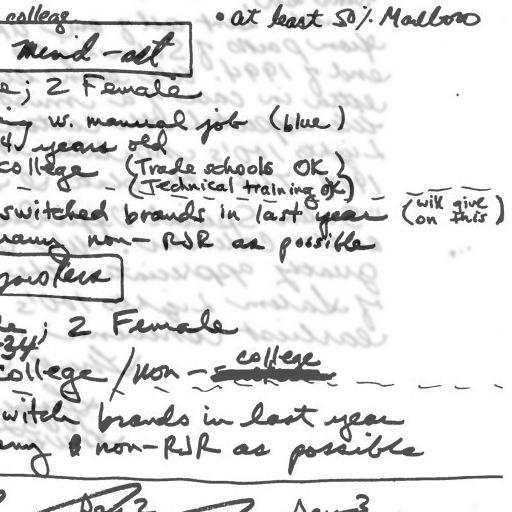 college • at least 50% Marlboro
mind-set
e; 2 Female
ing w. manual job (blue)
4 years old
college (Trade schools OK)
(Technical training OK)
switched brands in last year (will give on this)
many non-RJR as possible
e; 2 Female
34
college / non-college
witch brands in last year
any non-RJR as possible
Day 2 Day 3